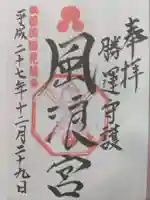 奉拝
勝運守護
風浪宮
平成二十七年十二月二十九日